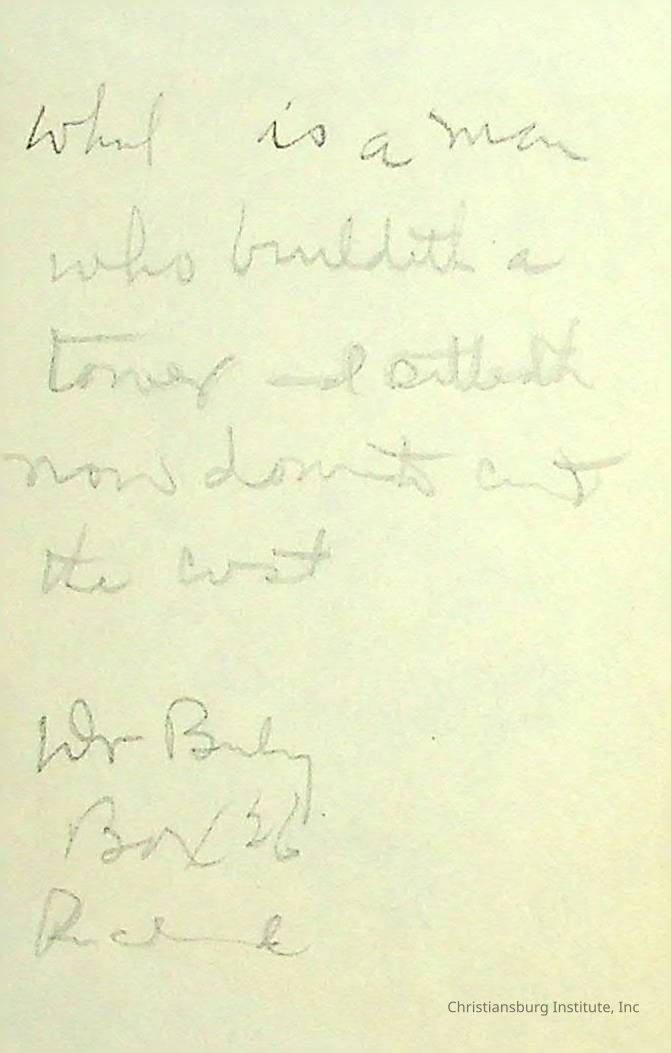 What is a man
who buildeth a
tower and sitteth
now down to count
the cost
Box 36
Christiansburg Institute, Inc